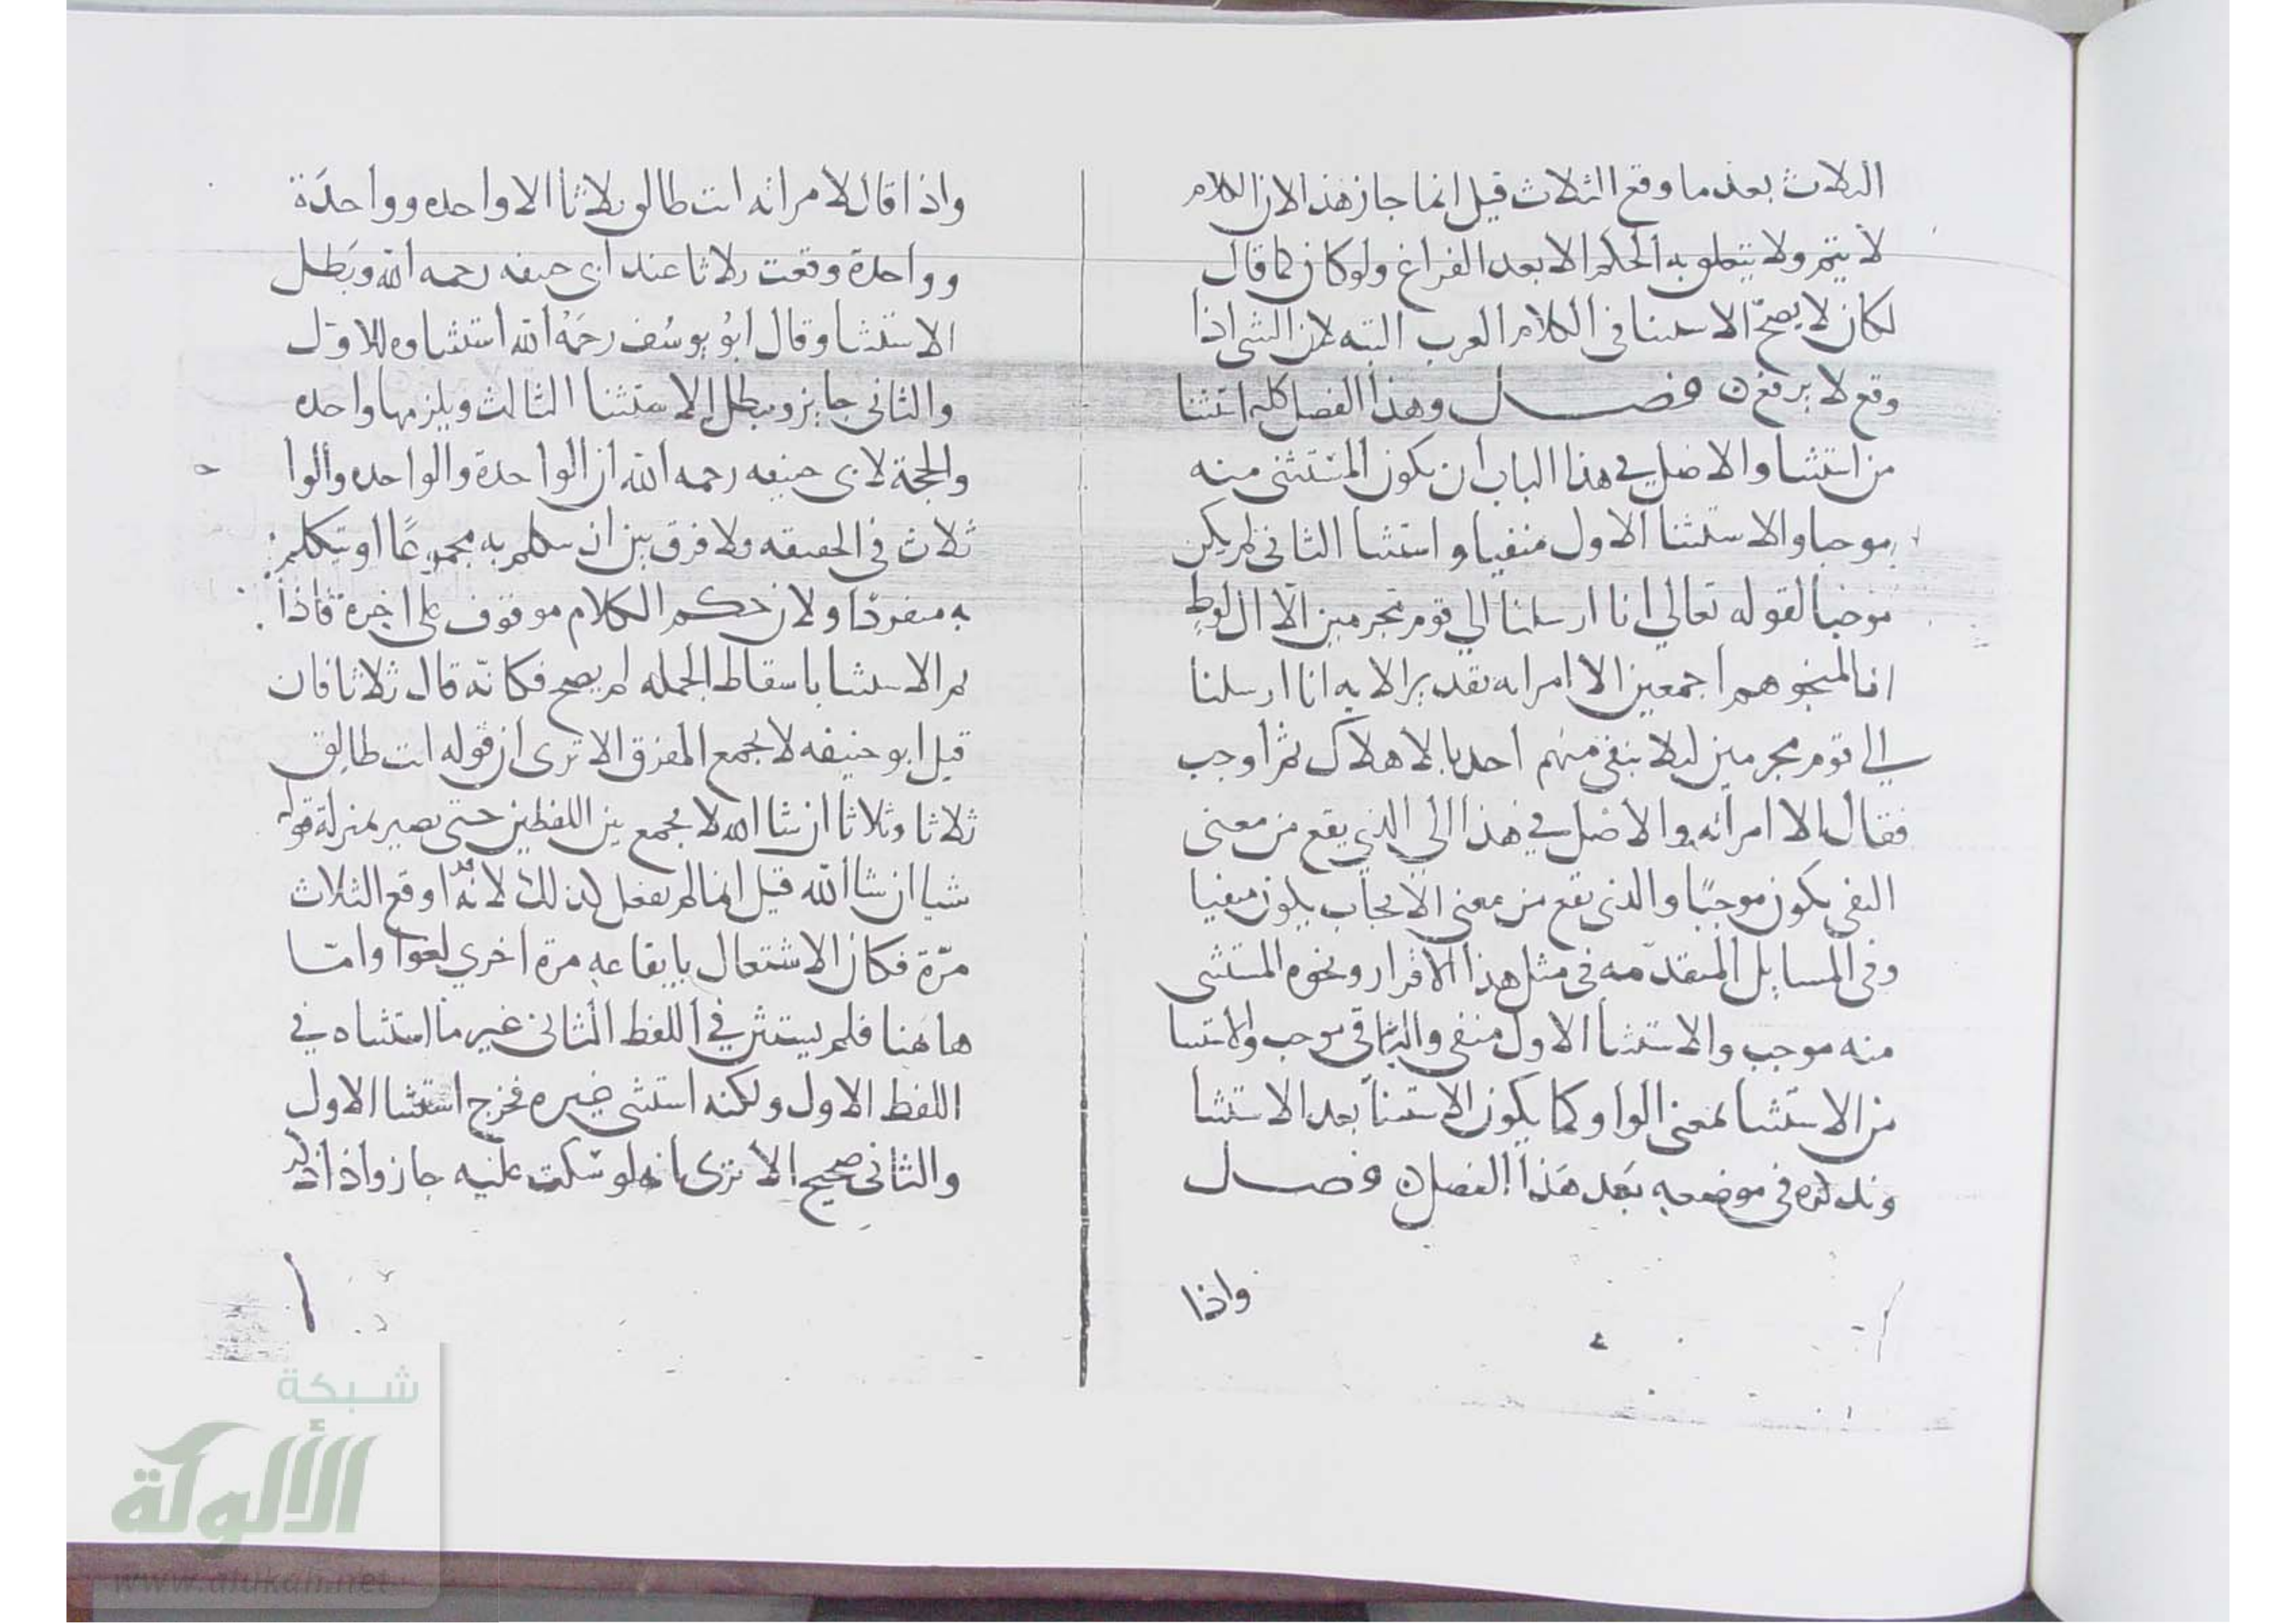 الثلاث بعد ما وقع الثلاث قيل انما جاز هذا لان الكلام
لا يتم ولا يتعلق به الحكم الا بعد الفراغ ولو كان كما قال
لكان لا يصح الاستثنا فى الكلام العرب البته لان الشى اذا
وقع لا يرتفع فصل وهذا الفصل كله استثنا
من استثنا والاصل في هذا الباب ان يكون المستثنى منه
موجبا والاستثنا الاول منفيا واستثنا الثانى لم يكن
موجبا لقوله تعالي انا ارسلنا الي قوم مجرمين الا ال لوط
انا لمنجوهم اجمعين الا امراته تقدير الايه انا ارسلنا
الي قوم مجرمين ليلا يبقى منهم احد بالاهلاك ثم اوجب
فقال الا امرأته والاصل في هذا الي الذي يقع من معنى
النفى يكون موجبًا والذى يقع من معنى الايجاب يكون منفيا
وفى المسايل المتقدّمه فى مثل هذا الاقرار ونحوه المستثنى
منه موجب والاستثنا الاول منفى والثانى موجب والاستثنا
من الاستثنا بمعنى الواو كما يكون الاستثنا بعد الاستثنا
ونذكره فى موضعه بَعد هَذا الفصل فصل
واذا
واذا قال لامراته انت طالق ثلاثا الا واحده وواحدَة
وواحدة وقعت ثلاثا عند ابى حنيفه رحمه الله وبَطل
الاستثنا وقال ابُو يوسُف رحمَهُ الله استثناوه للاوّل
والثانى جايز وبطل الاستثنا الثالث ويلزمها واحده
والحجة لابى حنيفه رحمه الله ان الواحدة والواحده والوا
ثلاث فى الحقيقه ولا فرق بين ان يتكلم به مجموعًا او يتكلم
به منفردًا ولان حكم الكلام موقوف على اخره فاذا
لم الاستثنا باسقاط الجمله لم يصح فكانّه قال ثلاثا فان
قيل ابو حنيفه لا يجمع المفرق الا ترى ان قوله انت طالق
ثلاثا وثلاثا ان شا الله لا يجمع بين اللفظين حتى يصير بمنزلة قوله
شيا ان شا الله قيل انما لم يفعل كذلك لانّه قد اوقع الثلاث
مرّة فكان الاشتغال بايقاعه مرة اخري لغوا وامّا
هاهنا فلم يستثن في اللفظ الثانى غير ما استثناه في
اللفظ الاول ولكنه استثنى غيره فخرج استثنا الاول
والثانى صحيح الا ترى بانه لو سكت عليه جاز واذا ذكر
شبكة
الألوكة
www.alukah.net